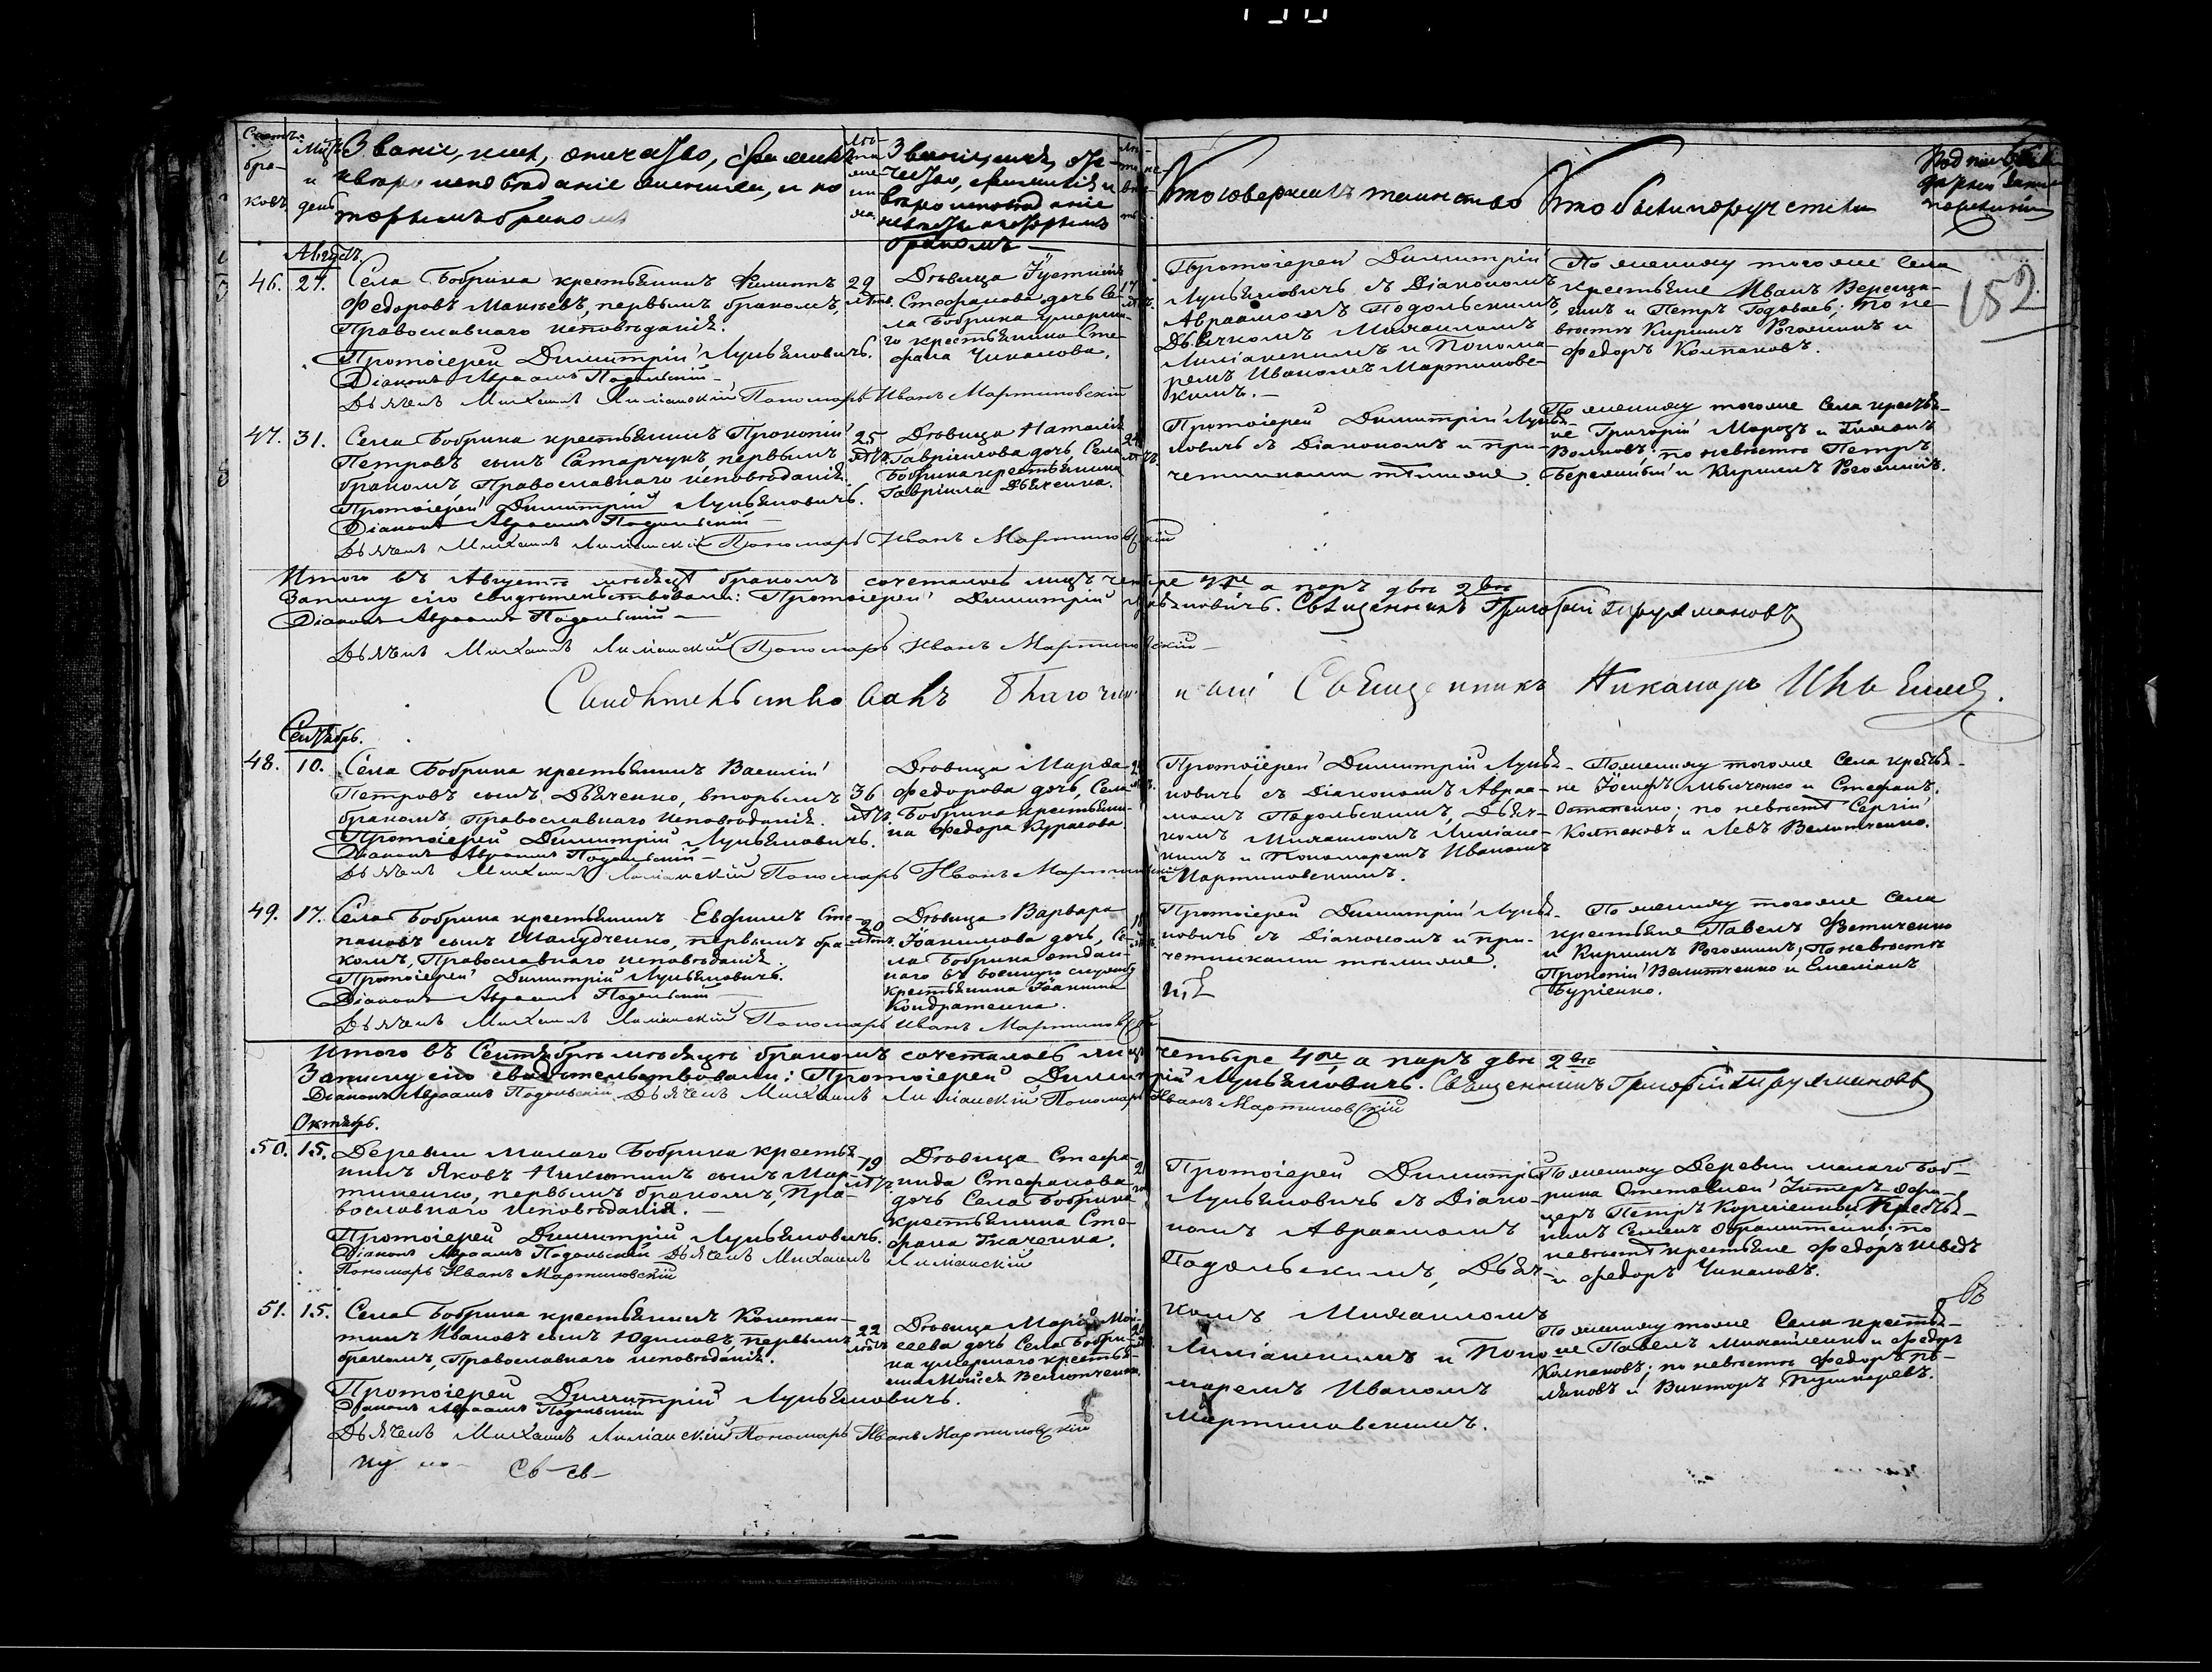 Счетъ
бра-
ковъ
и
день
Званіе, имя, отчество, фамилія
и вѣроисповѣданіе жениха, и ко
торымъ бракомъ
Званіе, имя, от-
чество, фамилія и
вѣроисповѣданіе
невѣсты и которымъ
бракомъ —
Кто совершалъ таинство
Кто были поручители
152
Августъ.
46.
27.
Села Бобрика крестьянинъ Филиппъ
Федоровъ первымъ бракомъ,
Православнаго исповѣданія.
Протоіерей Димитрій Лукьяновичъ.
Діаконъ Авраамъ Подольскій —
Дьячекъ Михаилъ Лиманскій Пономарь Иванъ Мартиновскій
29
лѣтъ
Дѣвица Іустинія
Стефанова дочь Се-
ла Бобрика умерша-
го крестьянина Сте-
фана Чикалова.
17
Протоіерей Димитрій
Лукьяновичъ съ Діакономъ
Авраамомъ Подольскимъ,
Дьячкомъ Михаиломъ
Лиманскимъ и Понома-
ремъ Иваномъ Мартиновс-
кимъ. —
По жениху того же Села
крестьяне Иванъ Вереща-
гинъ и Петръ По не-
вѣстѣ Кириллъ Рогожинъ и
Федоръ Колпаковъ.
47.
31.
Села Бобрика крестьянинъ Прокопій
Петровъ сынъ Самарчукъ, первымъ
бракомъ Православнаго исповѣданія.
Протоіерей Димитрій Лукьяновичъ.
Діаконъ Авраамъ Подольскій —
Дьячекъ Михаилъ Лиманскій Пономарь Иванъ Мартиновскій
25
лѣтъ
Дѣвица Наталія
Гавріилова дочь, Села
Бобрика крестьянина
Гавріила Дьяченка.
Протоіерей Димитрій Лукья-
новичъ съ Діакономъ и при-
четниками тѣми же.
По жениху того же Села крестья-
не Григорій Морозъ и
Волковъ; по невѣстѣ Петръ
Бережный и Кириллъ Рогожинъ.
Итого въ Августѣ мѣсяцѣ бракомъ сочеталось лицъ четыре 4ре а паръ двѣ 2вѣ
Запись сію свидѣтельствовали: Протоіерей Димитрій Лукьяновичъ. Священникъ Григорій
Діаконъ Авраамъ Подольскій —
Дьячекъ Михаилъ Лиманскій Пономарь Иванъ Мартиновскій —
Свидѣтельствовалъ Благочинный Священникъ Никаноръ
Сентябрь.
48.
10.
Села Бобрика крестьянинъ Василій
Петровъ сынъ Дьяченко, вторымъ
бракомъ Православнаго исповѣданія.
Протоіерей Димитрій Лукьяновичъ.
Діаконъ Авраамъ Подольскій —
Дьячекъ Михаилъ Лиманскій Пономарь Иванъ Мартиновскій
36
лѣтъ
Дѣвица Марфа
Федорова дочь, Села
Бобрика крестьяни-
на Федора Курасова.
Протоіерей Димитрій Лукья-
новичъ съ Діакономъ Авраа-
момъ Подольскимъ, Дьяч-
комъ Михаиломъ Лиманс-
кимъ и Пономаремъ Иваномъ
Мартиновскимъ.
По жениху того же Села крестья-
не Іосифъ и Стефанъ
Остапенко; по невѣстѣ Сергій
Колпаковъ и Левъ Велитченко.
49.
17.
Села Бобрика крестьянинъ Евфимъ Сте-
пановъ сынъ первымъ бра-
комъ, Православнаго исповѣданія.
Протоіерей Димитрій Лукьяновичъ.
Діаконъ Авраамъ Подольскій —
Дьячекъ Михаилъ Лиманскій Пономарь Иванъ Мартиновскій
20
лѣтъ
Дѣвица Варвара
Іоакимова дочь, Се-
ла Бобрика отдан-
наго въ военную службу
крестьянина Іоакима
Кондратенка.
Протоіерей Димитрій Лукья-
новичъ съ Діакономъ и при-
четниками тѣми же.
По жениху того же Села
крестьяне Павелъ
и Кириллъ Рогожинъ; По невѣстѣ
Прокопій Велитченко и Емеліанъ
Буріенко.
Итого въ Сентябрѣ мѣсяцѣ бракомъ сочеталось лицъ четыре 4ре а паръ двѣ 2вѣ
Запись сію свидѣтельствовали: Протоіерей Димитрій Лукьяновичъ. Священникъ Григорій
Діаконъ Авраамъ Подольскій Дьячекъ Михаилъ Лиманскій Пономарь Иванъ Мартиновскій
Октябрь.
50.
15.
Деревни Малаго Бобрика крестья-
нинъ Яковъ Никитинъ сынъ Мар-
тиненко, первымъ бракомъ, Пра-
вославнаго исповѣданія. —
Протоіерей Димитрій Лукьяновичъ.
Діаконъ Авраамъ Подольскій Дьячекъ Михаилъ Лиманскій
Пономарь Иванъ Мартиновскій
19
лѣтъ
Дѣвица Стефа-
нида Стефанова
дочь Села Бобрика
крестьянина Сте-
фана Ткаченка.
Протоіерей Димитрій
Лукьяновичъ съ Діако-
номъ Авраамомъ
Подольскимъ, Дьяч-
комъ Михаиломъ
Лиманскимъ и Поно-
маремъ Иваномъ
Мартиновскимъ.
По жениху Деревни малаго Боб-
рика Отставной Унтеръ-офи-
церъ Петръ Крестья-
нинъ Семенъ по
невѣстѣ крестьяне Федоръ Шведъ
и Федоръ Чикаловъ.
51.
15.
Села Бобрика крестьянинъ Констан-
тинъ Ивановъ сынъ Юдиновъ, первымъ
бракомъ, Православнаго исповѣданія.
Протоіерей Димитрій Лукьяновичъ.
Діаконъ Авраамъ Подольскій
Дьячекъ Михаилъ Лиманскій Пономарь Иванъ Мартиновскій
22
Дѣвица Марія Мои-
сеева дочь Села Бобри-
ка умершаго крестья-
нина Моисея Велитченка.
По жениху того же Села крестья-
не Павелъ Михайленко и Федоръ
Колпаковъ; по невѣстѣ Федоръ По-
ляковъ и Викторъ Пушкаревъ.